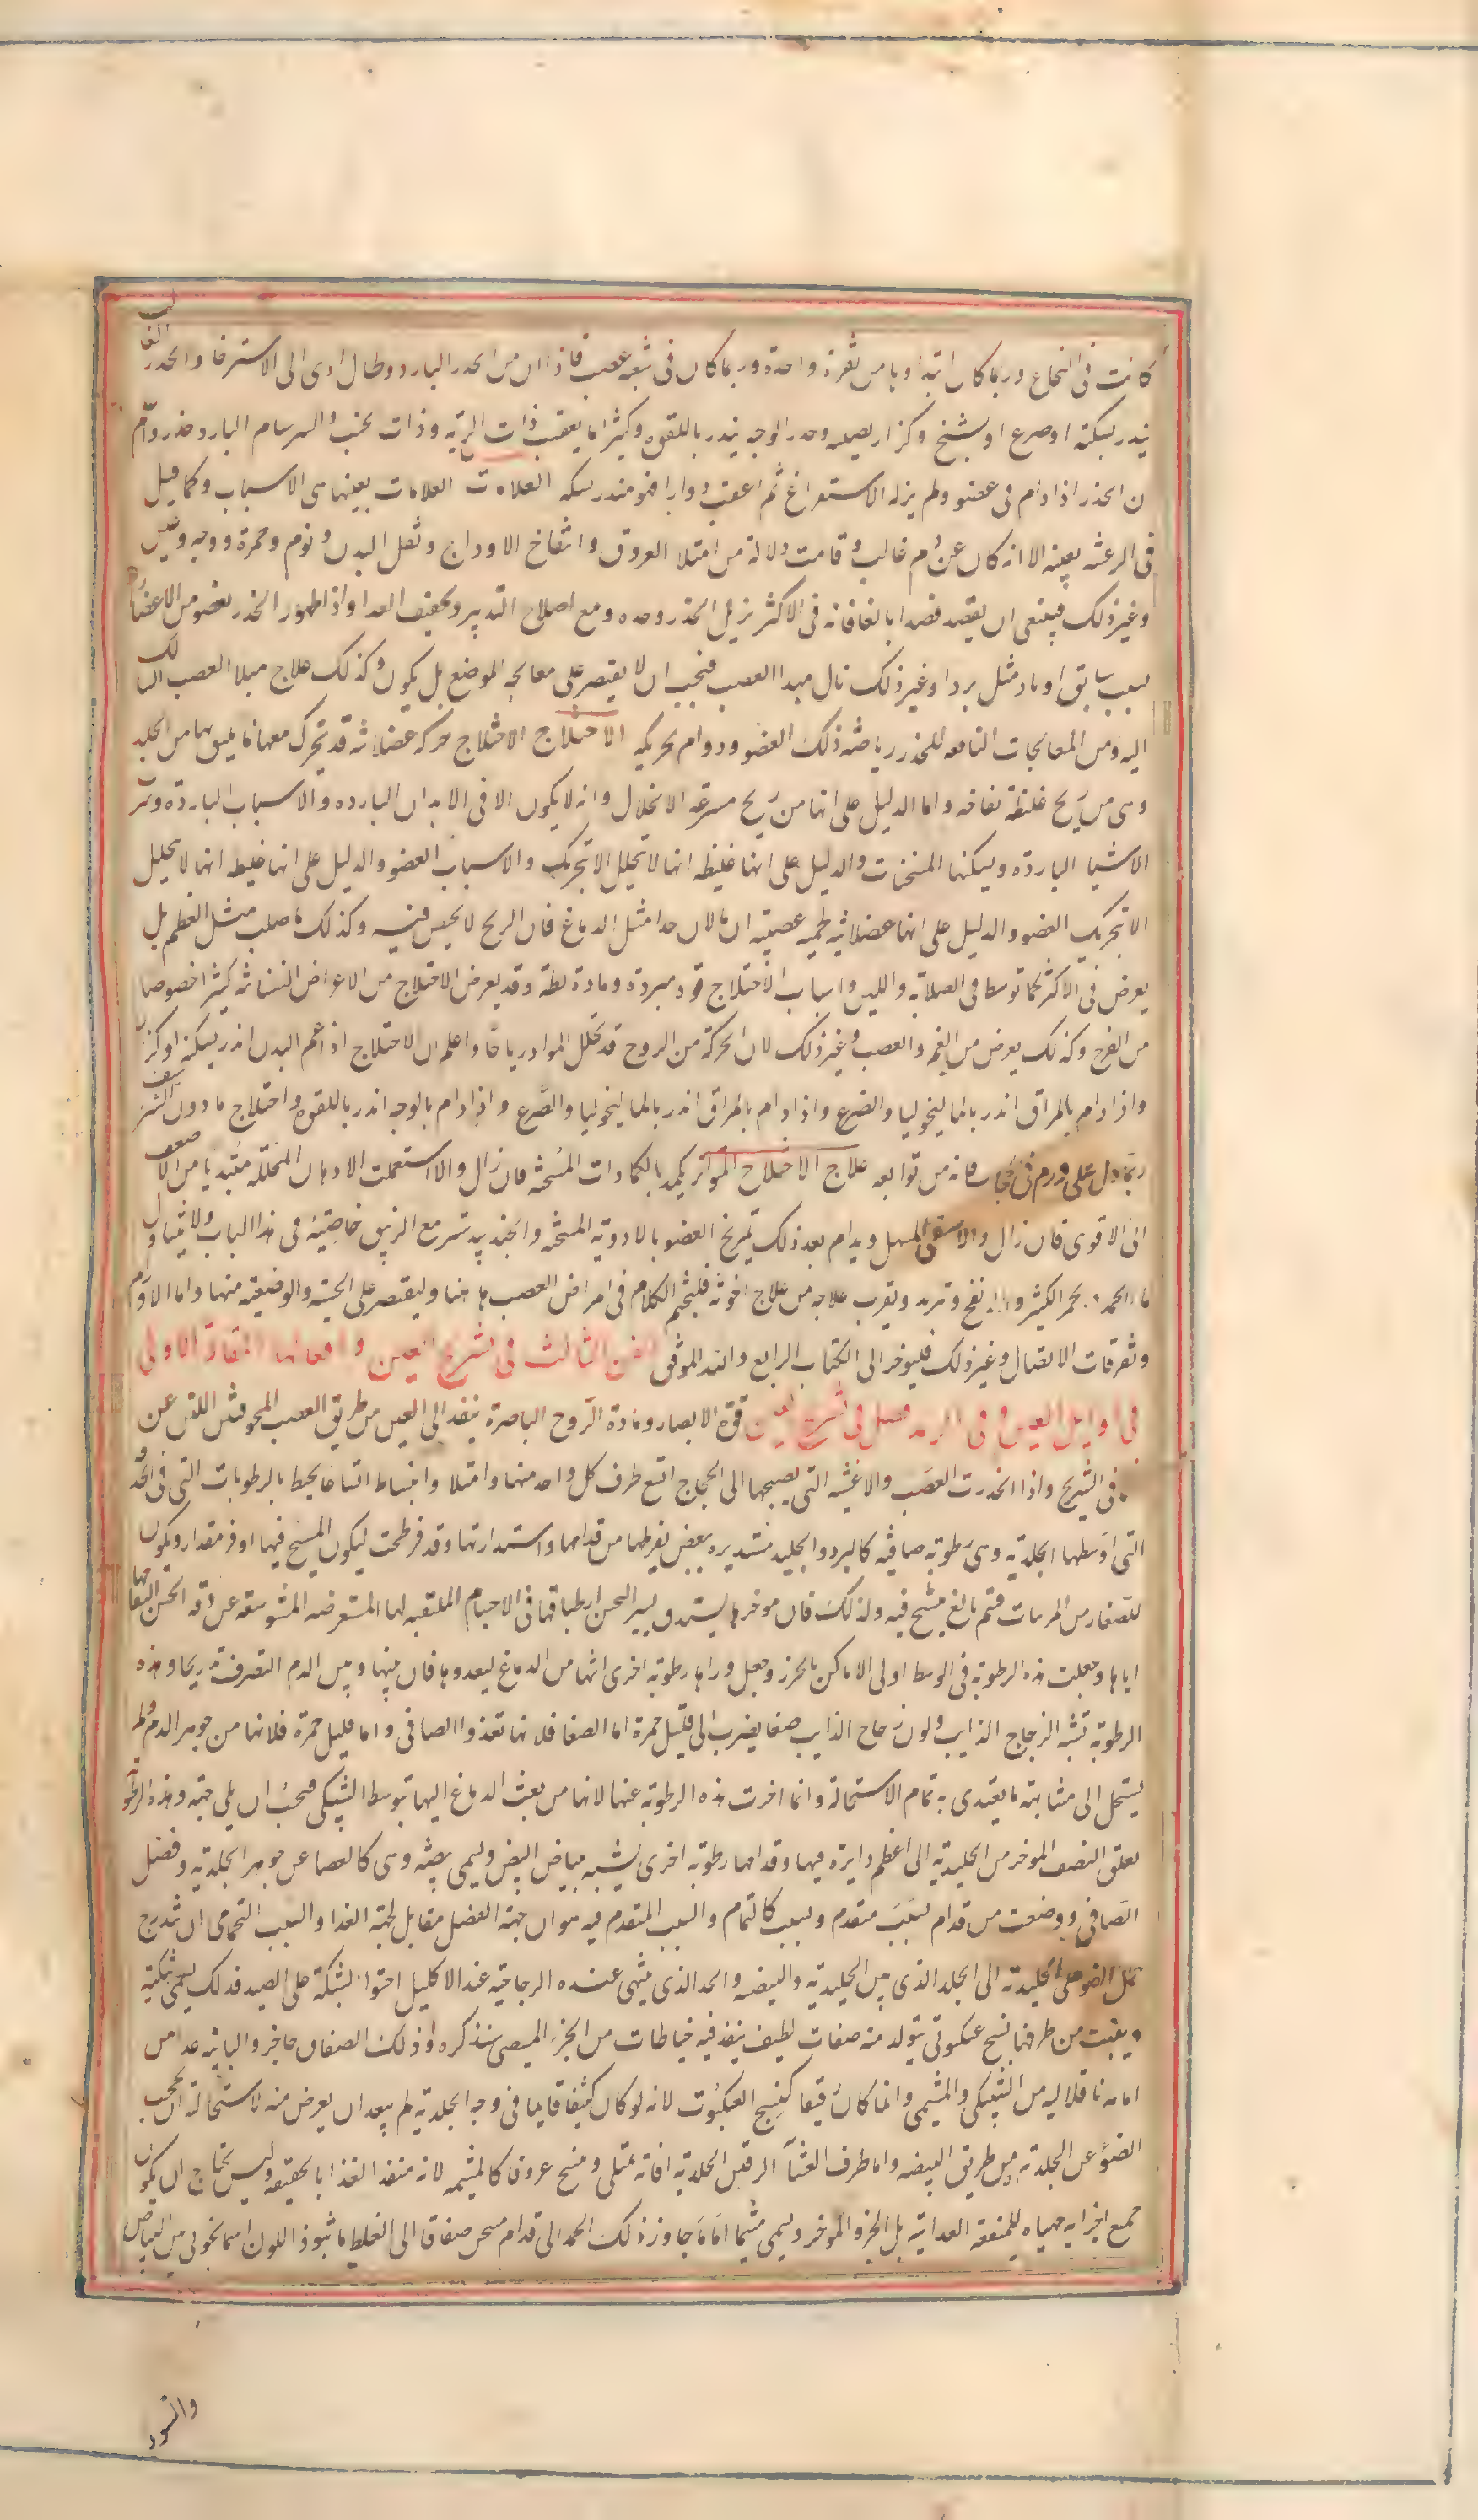 كانت فى النخاع وربما كان ابتداوها من فقرة واحدة وربما كان فى شعبة عصب فاذا ان من الخدر البارد وطال ادى الى الاسترخا والخدر الغالب
ينذر بسكتة او صرع او تشنج وكزاز وخدر الوجه ينذر باللقوه وكثيرا ما يعقب ذات الريه وذات الجنب والسرسام البارد خدر واعلم
ن الخدر اذا دام فى عضو ولم يزله الاستفراغ ثم اعقب دوارا فهو منذر بسكته العلامات العلامات بعينها هى الاسباب وكما قيل
فى الرعشه بعينه الا انه كان عن دم غالب وقامت دلالة من امتلا العروق وانتفاخ الاوداج وثقل البدن ونوم وحمرة ووجه وعين
وغير ذلك فينبغى ان يفصد فصدا بالغا فانه فى الاكثر يزيل الخدر وحده ومع اصلاح التدبير وتجفيف الغدا واذا ظهر الخدر بعضو من الاعضا
لسبب سابق او باد مثل برد او غير ذلك نال مبدا العصب فيجب ان لا يقتصر على معالجة الموضع بل يكون وكذلك علاج مبدا العصب السالك
اليه ومن المعالجات النافعه للخدر رياضة ذلك العضو ودوام تحريكه الاختلاج الاختلاج حركة عضلانية قد تحرك معها ما يليق بها من الجلد
وهى من ريح غليظة نفاخه واما الدليل على انها من ريح سرعة الانحلال وانه لا يكون الا فى الابدان البارده والاسباب البارده وشرب
الاشيا البارده ويسكنها المسخنات والدليل على انها غليظه انها لا تتحلل الا بتحريك والاسباب العضو والدليل على انها غليظه انها لا تحليل
الا بتحريك العضو والدليل على انها عضلانيه لحميه عصبية ان ما لان جدا مثل الدماغ فان الريح لا يحبس فيه وكذلك ما صلب مثل العظم بل
يعرض فى الاكثر لما توسط فى الصلابه واللين واسباب الاختلاج قوة مبردة ومادة رطبة وقد يعرض الاختلاج من الاعراض النفسانيه كثيرا خصوصا
من الفرح وكذلك يعرض من الغم والغضب وغير ذلك لان الحركة من الروح قد تحلل المواد رياحا واعلم ان الاختلاج اذا عم البدن انذر بسكتة او كزاز
واذا دام بالمراق انذر بالماليخوليا والصرع واذا دام بالمراق انذر بالماليخوليا والصرع واذا دام بالوجه انذر باللقوه واختلاج ما دون الشراسيف
ربما دل على ورم فى حجاب فانه من توابعه علاج الاختلاج المتواتر يكمد بالكمادات المسخنه فان زال والا استعملت الادهان المحللة مبتديا من الاضعف
الى الاقوى فان زال والا سقى المسهل ويدام بعد ذلك تمريخ العضو بالادوية المسخنه والجند بيدستر مع الزنبق خاصية فى هذا الباب ولا يتناول
ما الجمد ولا الخمر الكثير وما ينفخ ويبرد ويقرب علاجه من علاج اخوته فليختم الكلام فى امراض العصب هاهنا وليقتصر على الحسية والوضعية منها واما الاورام
وتفرقات الاتصال وغير ذلك فليوخر الى الكتاب الرابع والله الموفق الفن الثالث فى تشريح العين وافعالها المقالة الاولى
فى اوايل العين وفى الرمد فصل فى تشريح العين قوة الابصار ومادة الروح الباصرة ينفذ الى العين من طريق العصب المجوفتين اللتين عن
فى التشريح واذا انحدرت العصب والاغشيه التى يصحبها الى الحجاج اتسع طرف كل واحد منهما وامتلا وانبسط اتساعا يحيط بالرطوبات التى فى الحدقة
التى اوسطها الجلديه وهى رطوبة صافيه كالبرد والجليد مستديره ينقص تفرطحها من قدامها واستدارتها وقد فرطحت ليكون المشبح فيها اوفر مقدارا ويكون
للصغار من المرئيات قسم بالغ يتشبح فيه ولذلك فان موخرها يستدق يسيرا ليحسن انطباقها فى الاجسام الملتقمه لها المستعرضه المتوسعه عن دقة لحسن التقامها
اياها وجعلت هذه الرطوبة فى الوسط اولى الاماكن بالحرز وجعل وراها رطوبة اخرى اتتها من الدماغ ليغدوها فان بينها وبين الدم الصرف تدريجا وهذه
الرطوبة تشبه الزجاج الذايب ولون زجاج الذايب صفا يضرب الى قليل حمرة اما الصفا فلانها تغذوا الصافى واما قليل حمرة فلانها من جوهر الدم ولم
يستحل الى مشابهة ما يغتذى به تمام الاستحالة وانما اخرت هذه الرطوبة عنها لانها من بعث الدماغ اليها بتوسط الشبكى فيجب ان يلى جهته وهذه الرطوبة
تعلق النصف الموخر من الجليدية الى اعظم دايرة فيها وقدامها رطوبة اخرى يشبه بياض البيض ويسمى بيضية وهى كالفصل عن جوهر الجلدية وفضل
الصافى ووضعت من قدام لسبب متقدم ولسبب كالتمام والسبب المتقدم فيه هو ان جهة الفضل مقابل لجهة الغدا والسبب التمامى ان يتدرج
حمل الضو على الجليديه الى الجلد الذى بين الجليدية والبيضه والحد الذى ينتهى عنده الزجاجيه عند الاكليل احتوا الشبكة على الصيد فلذلك يسمى شبكية
وينبت من طرفها نسج عنكبوتى يتولد منه صفاق لطيف ينفذ فيه خياطات من الجزء المشيمى سنذكره وذلك الصفاق حاجز
امامه نافلا اليه من الشبكى والمشيمى وانما كان رقيقا كنسج العنكبوت لانه لو كان كثيفا قايما فى وجه الجلدية لم يبعد ان يعرض منه لاستحالة ان يحجب
الضو عن الجلدية من طريق البيضه واما طرف الغشآ الرقيق فانه يمتلى وينسج عروقا كالمشيمه لانه منفذ الغذا بالحقيقه وليس يحتاج ان يكون
جميع اجزايه مهياه للمنفعه الغذايه بل الجزو الموخر ويسمى مشيميا اما ما جاوز ذلك الحد الى قدام فيثخن صفاقا الى الغلظ ما هو ذا اللون اسمانجونى بين البياض
والسواد